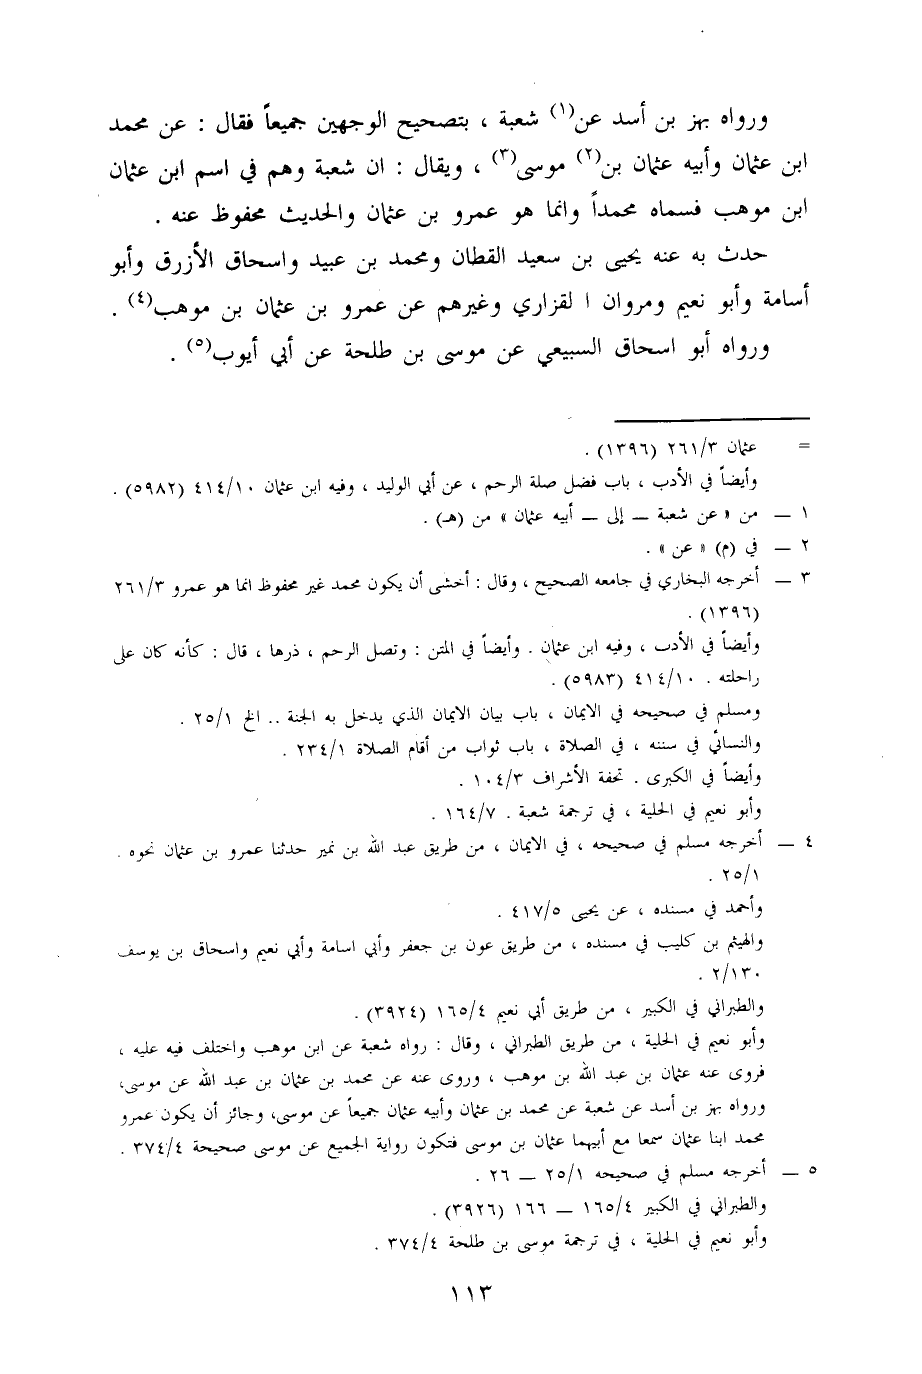 ورواه بهز بن أسد عن(١) شعبة ، بتصحيح الوجهين جميعاً فقال : عن محمد
ابن عثمان وأبيه عثمان بن(٢) موسى(٣) ، ويقال : ان شعبة وهم في اسم ابن عثمان
ابن موهب فسماه محمداً وانما هو عمرو بن عثمان والحديث محفوظ عنه .
حدث به عنه يحيى بن سعيد القطان ومحمد بن عبيد واسحاق الأزرق وأبو
أسامة وأبو نعيم ومروان ا لفزاري وغيرهم عن عمرو بن عثمان بن موهب(٤) .
ورواه أبو اسحاق السبيعي عن موسى بن طلحة عن أبي أيوب(٥) .
= عثمان ٢٦١/٣ (١٣٩٦) .
وأيضاً في الأدب ، باب فضل صلة الرحم ، عن أبي الوليد ، وفيه ابن عثمان ٤١٤/١٠ (٥٩٨٢) .
١ ــ من « عن شعبة ــ إلى ــ أبيه عثمان » من (هـ) .
٢ ــ في (م) « عن » .
٣ ــ أخرجه البخاري في جامعه الصحيح ، وقال : أخشى أن يكون محمد غير محفوظ انما هو عمرو ٢٦١/٣
(١٣٩٦) .
وأيضاً في الأدب ، وفيه ابن عثمان . وأيضاً في المتن : وتصل الرحم ، ذرها ، قال : كأنه كان على
راحلته . ٤١٤/١٠ (٥٩٨٣) .
ومسلم في صحيحه في الايمان ، باب بيان الايمان الذي يدخل به الجنة .. الخ ٢٥/١ .
والنسائي في سننه ، في الصلاة ، باب ثواب من أقام الصلاة ٢٣٤/١ .
وأيضاً في الكبرى . تحفة الأشراف ١٠٤/٣ .
وأبو نعيم في الحلية ، في ترجمة شعبة . ١٦٤/٧ .
٤ ــ أخرجه مسلم في صحيحه ، في الايمان ، من طريق عبد الله بن نمير حدثنا عمرو بن عثمان نحوه .
٢٥/١ .
وأحمد في مسنده ، عن يحيى ٤١٧/٥ .
والهيثم بن كليب في مسنده ، من طريق عون بن جعفر وأبي اسامة وأبي نعيم واسحاق بن يوسف
٢/١٣٠ .
والطبراني في الكبير ، من طريق أبي نعيم ١٦٥/٤ (٣٩٢٤) .
وأبو نعيم في الحلية ، من طريق الطبراني ، وقال : رواه شعبة عن ابن موهب واختلف فيه عليه ،
فروى عنه عثمان بن عبد الله بن موهب ، وروى عنه عن محمد بن عثمان بن عبد الله عن موسى،
ورواه بهز بن أسد عن شعبة عن محمد بن عثمان وأبيه عثمان جميعاً عن موسى، وجائز أن يكون عمرو
محمد ابنا عثمان سمعا مع أبيهما عثمان بن موسى فتكون رواية الجميع عن موسى صحيحة ٣٧٤/٤ .
٥ ــ أخرجه مسلم في صحيحه ٢٥/١ ــ ٢٦ .
والطبراني في الكبير ١٦٥/٤ ــ ١٦٦ (٣٩٢٦) .
وأبو نعيم في الحلية ، في ترجمة موسى بن طلحة ٣٧٤/٤ .
١١٣